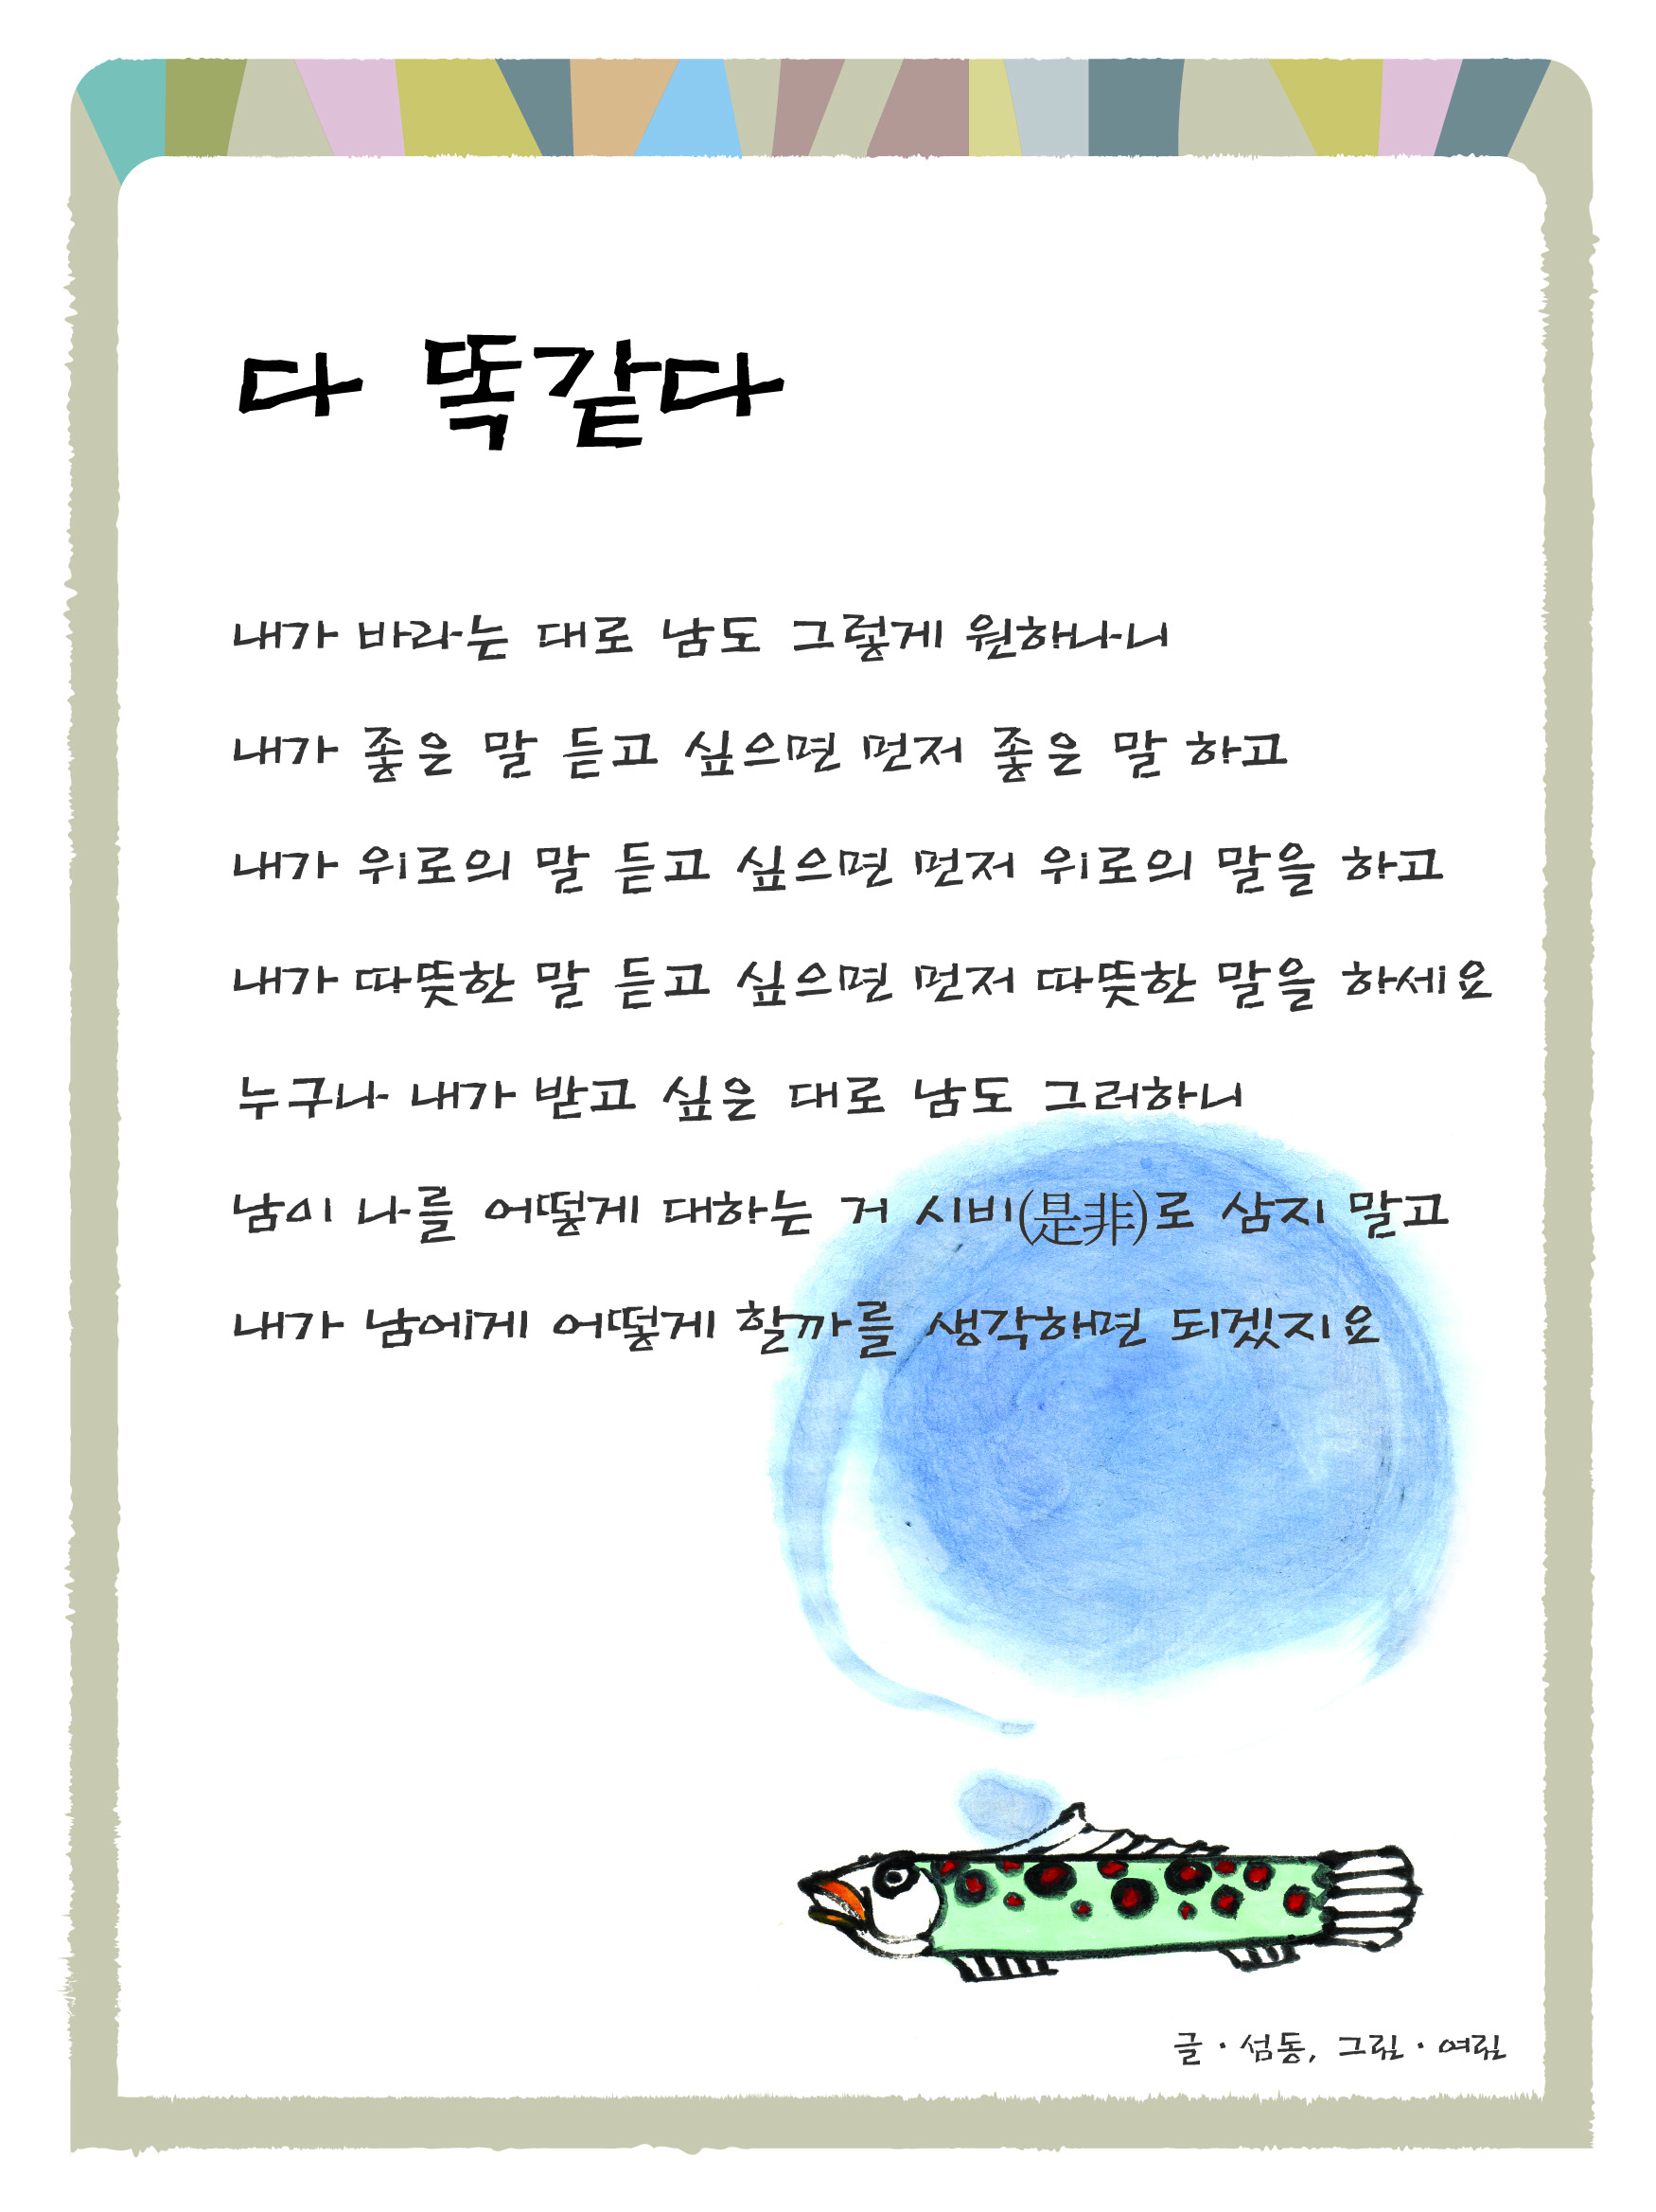 다 똑같다
내가 바라는 대로 남도 그렇게 원하나니
내가 좋은 말 듣고 싶으면 먼저 좋은 말 하고
내가 위로의 말 듣고 싶으면 먼저 위로의 말을 하고
내가 따뜻한 말 듣고 싶으면 먼저 따뜻한 말을 하세요
누구나 내가 받고 싶은 대로 남도 그러하니
남이 나를 어떻게 대하는 거 시비(是非)로 삼지 말고
내가 남에게 어떻게 할까를 생각해면 되겠지요
글·섬동, 그림·여림